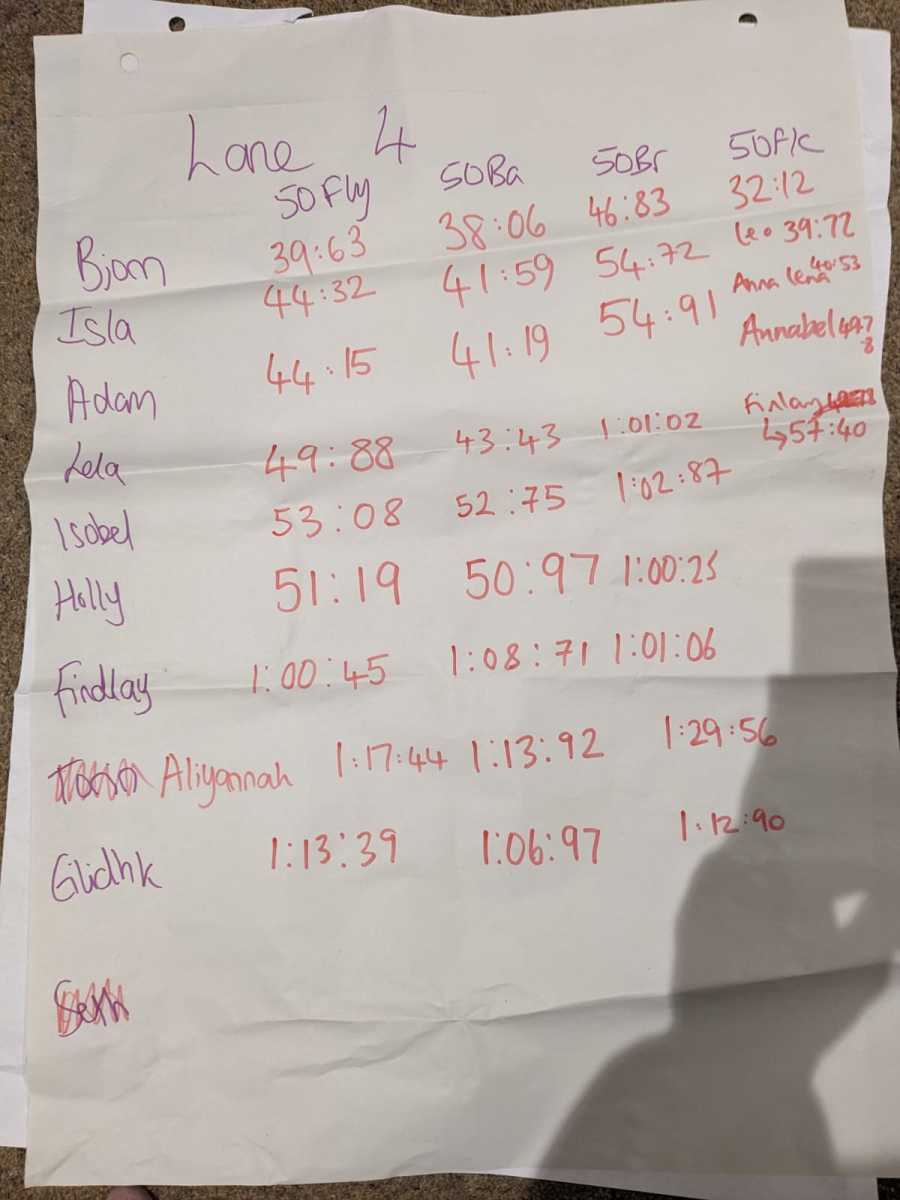 Lane 4
50Fly 50Ba 50Br 50F/c
Bjorn 39:63 38:06 46:83 32:12
Isla 44:32 41:59 54:72 Leo 39:72
Adam 44:15 41:19 54:91 Anna Lena 40:53
Annabel 49:78
Lela 49:88 43:43 1:01:02 Finlay
↳57:40
Isobel 53:08 52:75 1:02:87
Holly 51:19 50:97 1:00:25
Findlay 1:00:45 1:08:71 1:01:06
Aliyannah 1:17:44 1:13:92 1:29:56
1:13:39 1:06:97 1:12:90